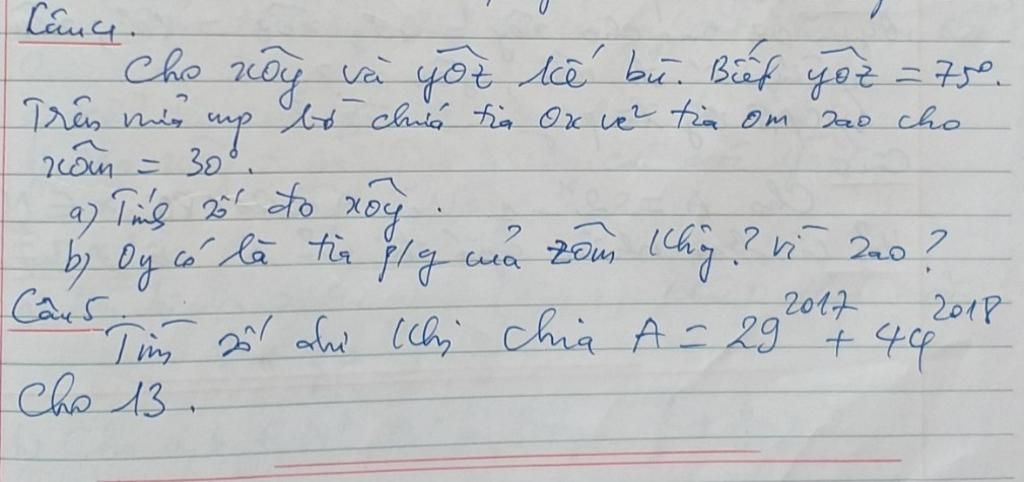 Câu 4.
Cho xÔy và yÔz kề bù. Biết yÔz = 75°.
Trên nửa mp bờ chứa tia Ox vẽ tia Om sao cho
xÔm = 30°.
a) Tính số đo xÔy.
b) Oy có là tia p/g của zÔm không? vì sao?
Câu 5.
Tìm số dư khi chia A = 29²⁰¹⁷ + 44²⁰¹⁸
cho 13.